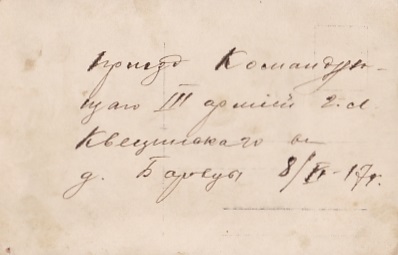 Приезд Командую-
щаго III армiей г. л
Квецинскаго в
д. Баровцы 8/VI-17г.